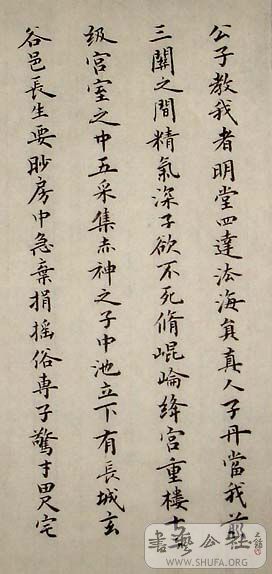 公子教我者明堂四達法海員真人子丹當我前
三關之間精氣深子欲不死脩崐崘絳宮重樓十二
級宮室之中五采集赤神之子中池立下有長城玄
谷邑長生要眇房中急棄捐搖俗專子驚寸田尺宅
書藝公社
WWW.SHUFA.ORG